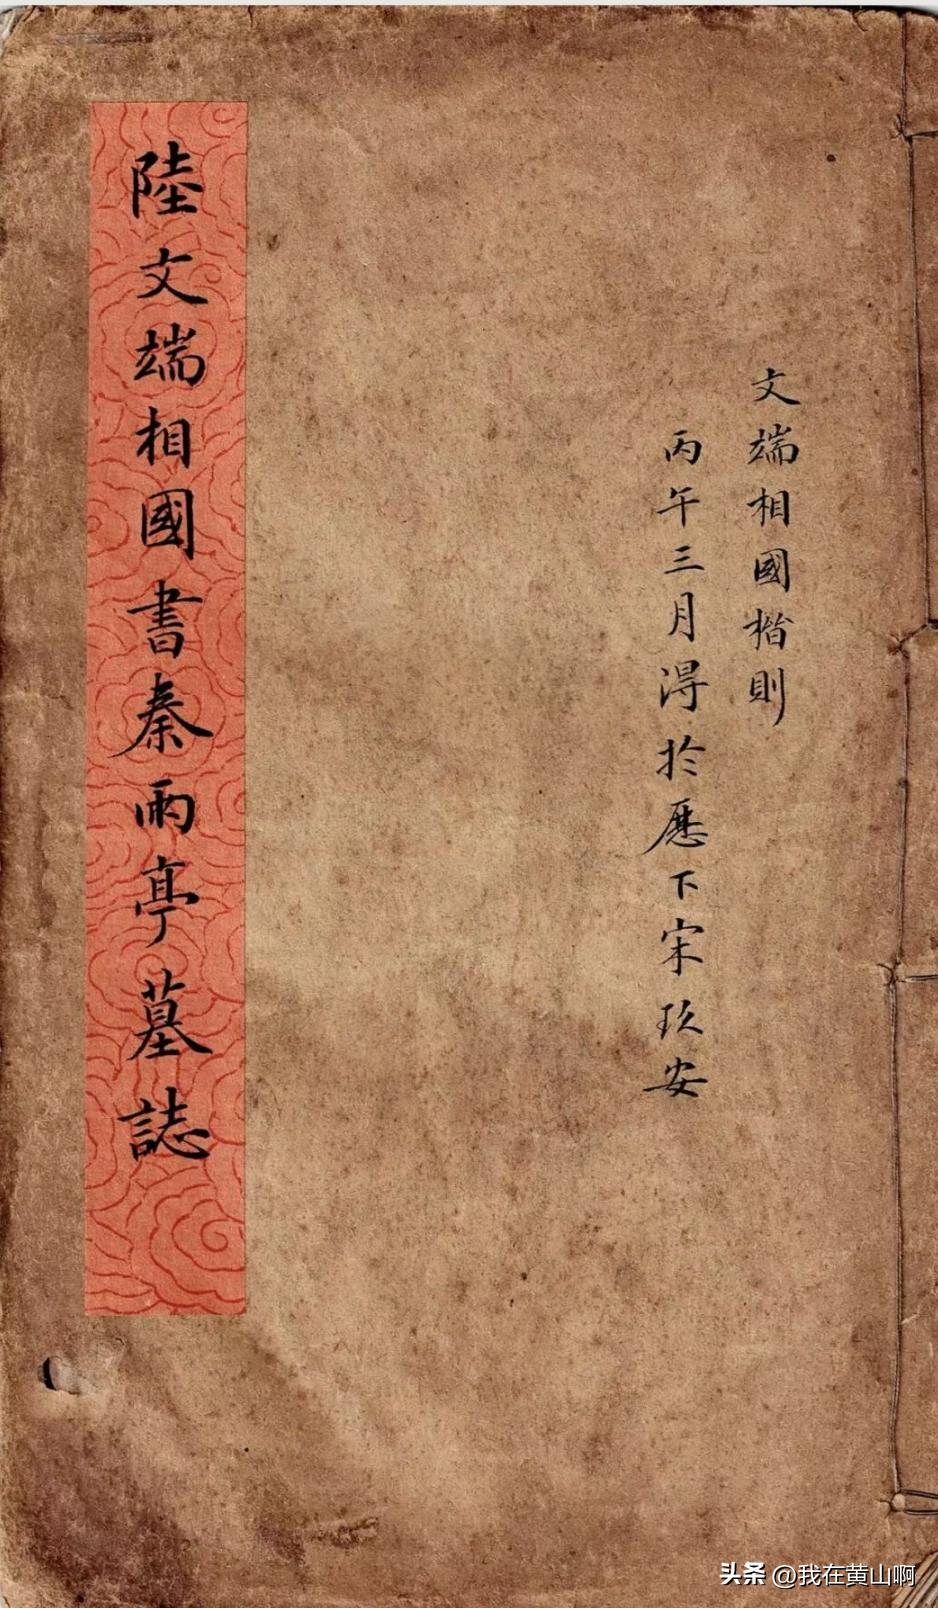 文端相國楷則
丙午三月得於歷下宋玖安
陸文端相國書秦雨亭墓誌
头条 @我在黄山啊